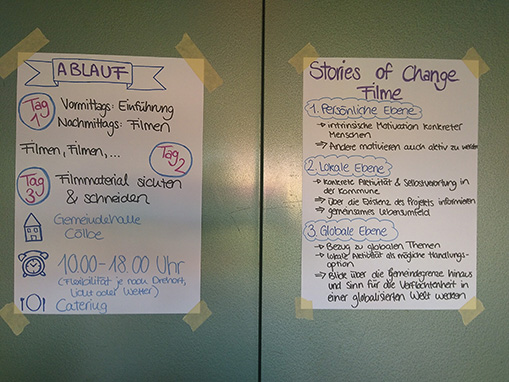 ABLAUF
Tag 1
Vormittags: Einführung
Nachmittags: Filmen
Filmen, Filmen, ...
Tag 2
Tag 3
Filmmaterial sichten
& schneiden
Gemeindehalle
Cölbe
10.00-18.00 Uhr
(Flexibilität je nach Drehort,
Licht oder Wetter)
Catering
Stories of Change
Filme
1. Persönliche Ebene
→ intrinsische Motivation konkreter
Menschen
⇒ Andere motivieren auch aktiv zu werden
2. Lokale Ebene
→ Konkrete Aktivität & Selbstwortung in
der Kommune
⇒ Über die Existenz des Projekts informieren
→ gemeinsames Lebensumfeld
3. Globale Ebene
→ Bezug zu globalen Themen
→ lokale Aktivität als mögliche Handlungs-
option
⇒ Blick über die Gemeindegrenze hinaus
und Sinn für die Verflochtenheit in
einer globalisierten Welt wecken